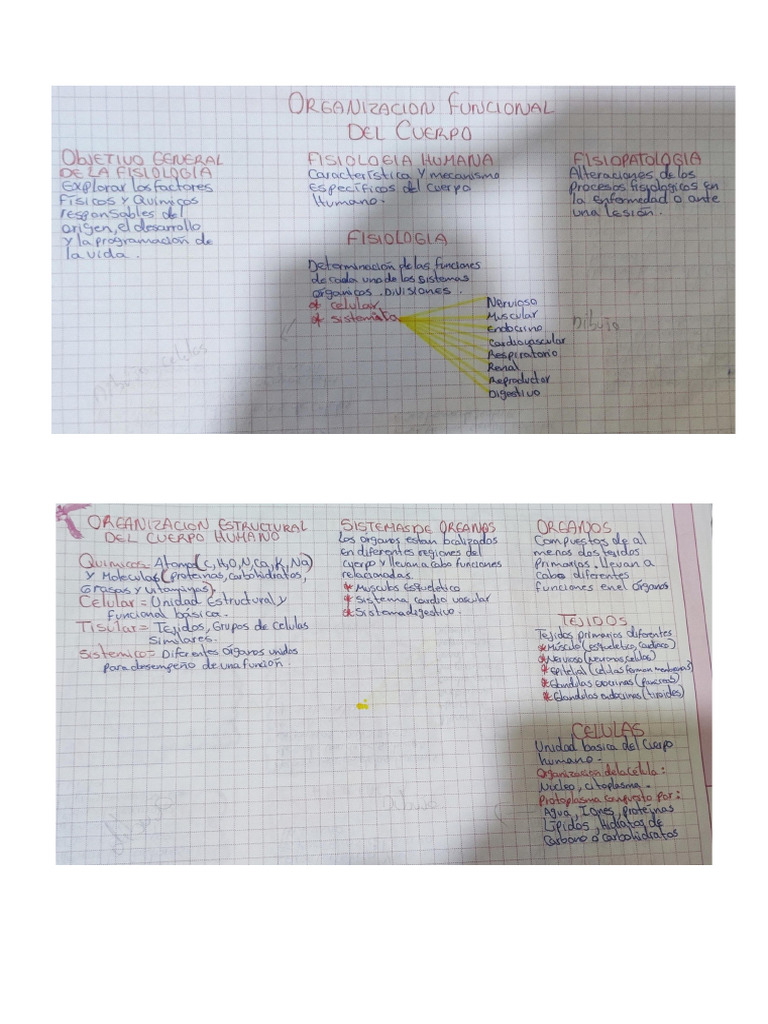 ORGANIZACION FUNCIONAL
DEL CUERPO
OBJETIVO GENERAL
DE LA FISIOLOGÍA
Explorar los factores
Físicos y Químicos
responsables del
origen, el desarrollo
y la programación de
la vida.
FISIOLOGIA HUMANA
Característica y mecanismo
Específicos del cuerpo
Humano.
FISIOLOGIA
Determinación de las funciones
de cada uno de los sistemas
orgánicos. DIVISIONES.
* celular
* sistemáta
Nervioso
Muscular
Endocrino
Cardiovascular
Respiratorio
Renal
Reproductor
Digestivo
FISIOPATOLOGIA
Alteraciones de los
procesos fisiologicos en
la enfermedad o ante
una Lesión.
Dibujo
ORGANIZACION ESTRUCTURAL
DEL CUERPO HUMANO
Quimicos= Atomos (C, H, O, N, Ca, K, Na)
y Moleculas (proteínas, carbohidratos,
Grasas y vitaminas)
Celular = Unidad Estructural y
funcional básica.
Tisular= Tejidos, Grupos de celulas
similares.
Sistemico= Diferentes órganos unidos
para desempeño de una función.
SISTEMAS DE ORGANOS
Los órganos estan localizados
en diferentes regiones del
cuerpo y llevan a cabo funciones
relacionadas.
* Musculos Esqueletico
* Sistema cardio vascular
* Sistema digestivo.
ORGANOS
Compuestos de al
menos dos tejidos
primarios. llevan a
cabo diferentes
funciones en el órganos
TEJIDOS
Tejidos primarios diferentes
* Músculo (esqueletico, cardiaco)
* Nervioso (neuronas, celulas)
* Epitelial (celulas forman membranas)
* Glandulas exocrinas (pancreas)
* Glandulas endocrinas (tiroides)
CELULAS
Unidad basica del cuerpo
humano.
Organización de la célula:
Núcleo, citoplasma.
Protoplasma compuesto por:
Agua, Iones, proteinas
Lípidos, Hidratos de
carbono o carbohidratos